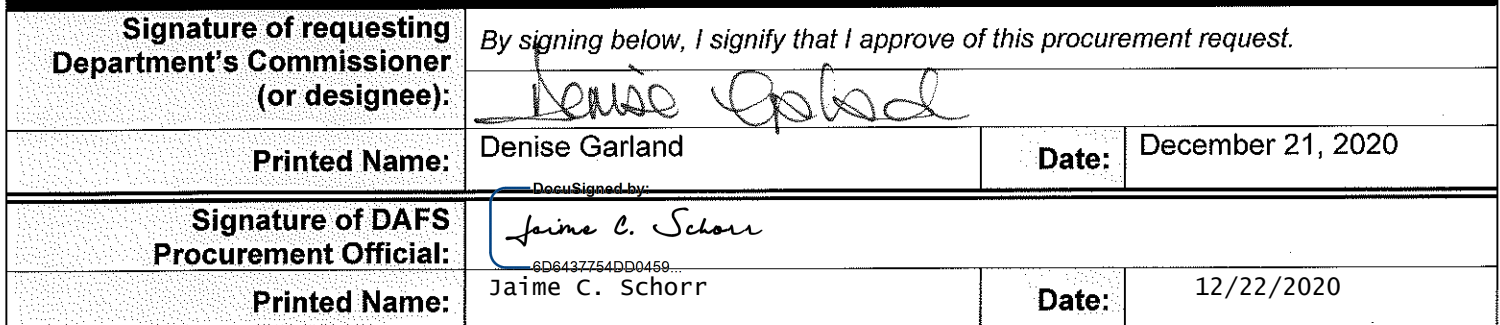 Signature of requesting
Department's Commissioner
(or designee):
By signing below, I signify that I approve of this procurement request.
Denise Garland
Printed Name:
Denise Garland
Date:
December 21, 2020
Signature of DAFS
Procurement Official:
DocuSigned by:
Jaime C. Schorr
6D6437754DD0459...
Printed Name:
Jaime C. Schorr
Date:
12/22/2020